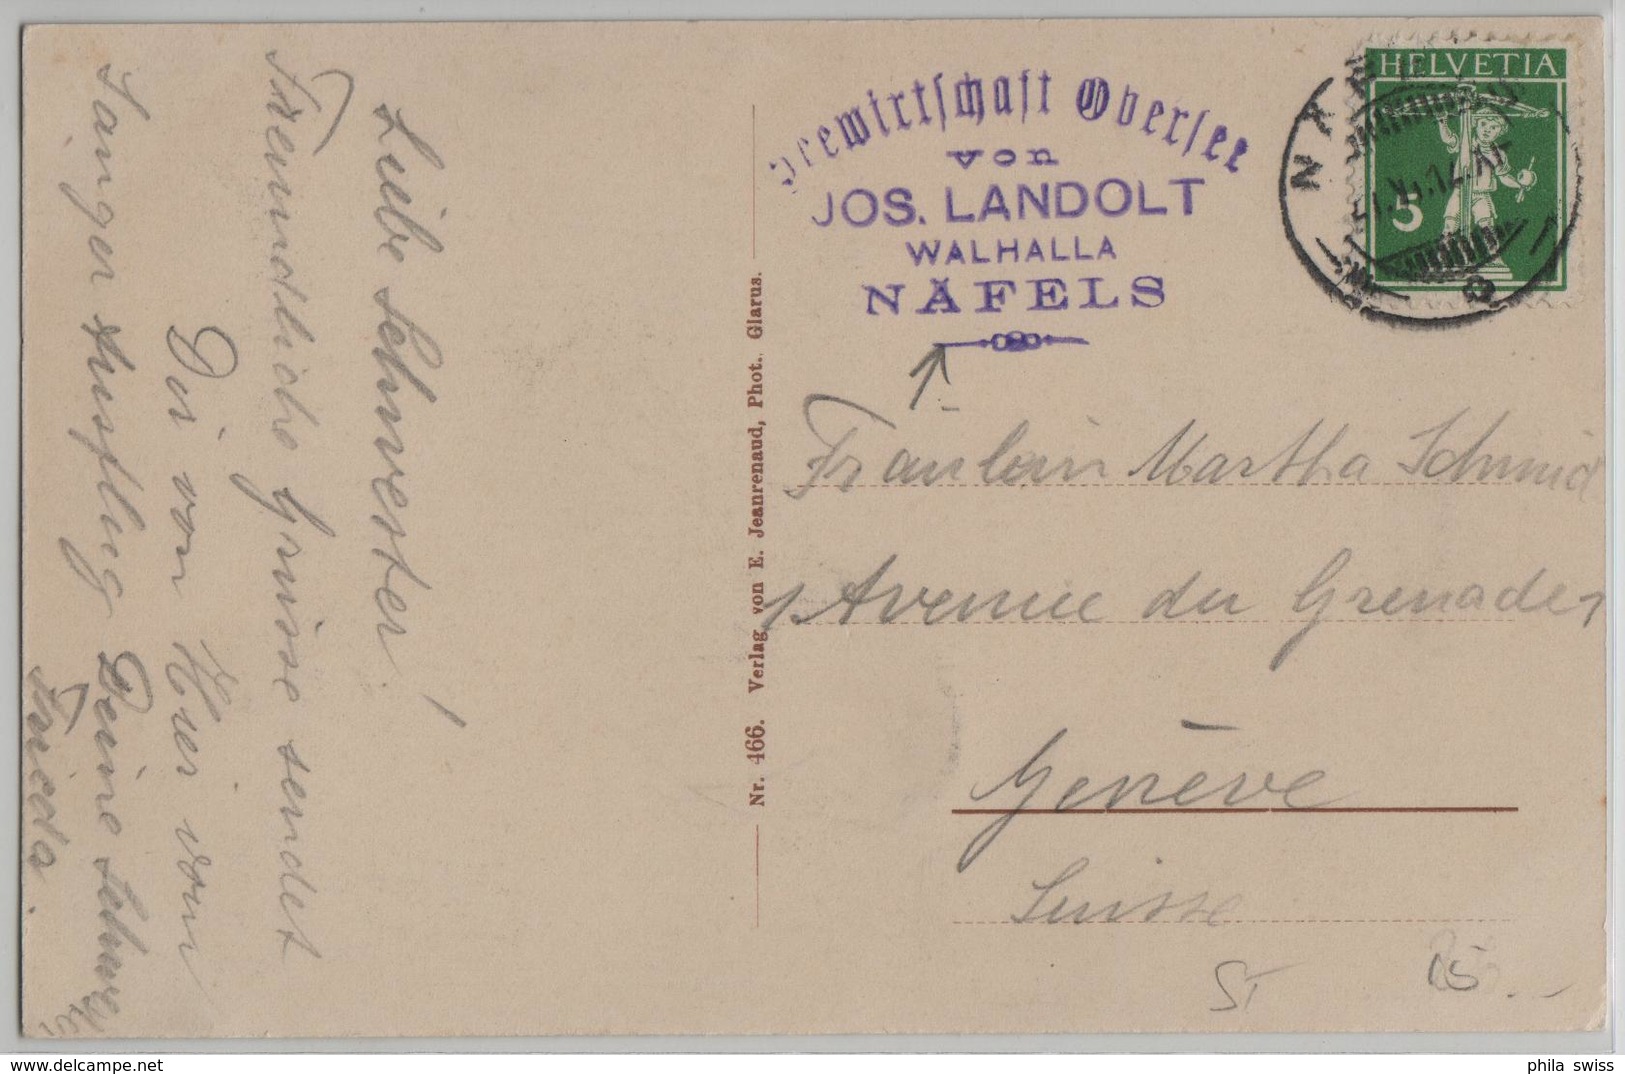 Liebe Schwester!
Freundliche Grüsse sendet
Dir von Hier vom
Langer Ausflug Deine Schwe
Frieda.
Nr. 466. Verlag von E. Jeanrenaud, Phot., Glarus.
Seewirtschaft Obersee
von
JOS. LANDOLT
WALHALLA
NÄFELS
HELVETIA
5
NÄF
Fräulein Martha Schmid
1 Avenue du Grenades
Genève
Suisse
ST
15
phila swiss